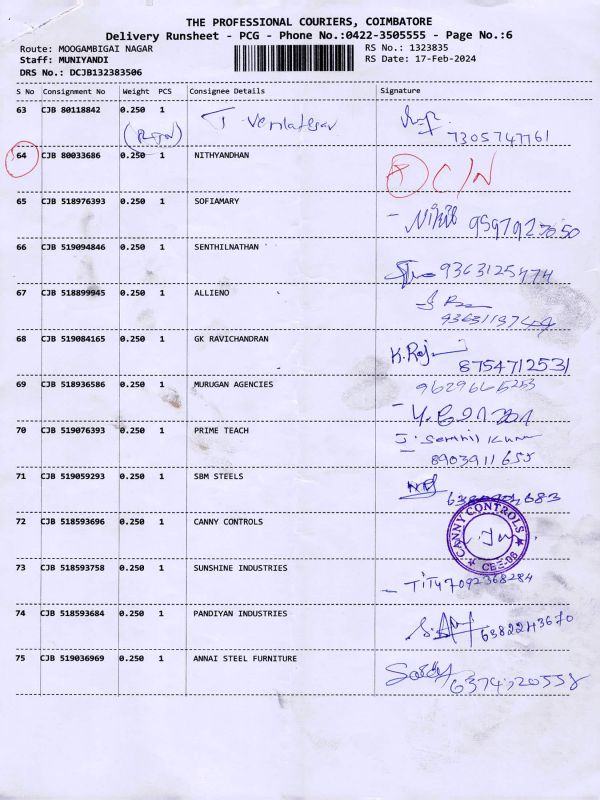 THE PROFESSIONAL COURIERS, COIMBATORE
Delivery Runsheet - PCG - Phone No.:0422-3505555 - Page No.:6
Route: MOOGAMBIGAI NAGAR RS No.: 1323835
Staff: MUNIYANDI RS Date: 17-Feb-2024
DRS No.: DCJB132383506
S No Consignment No Weight PCS Consignee Details Signature
63 CJB 80118842 0.250 1
7305747761
64 CJB 80033686 0.250 1 NITHYANDHAN C/N
65 CJB 518976393 0.250 1 SOFIAMARY
9597927050
66 CJB 519094846 0.250 1 SENTHILNATHAN
9363125474
67 CJB 518899945 0.250 1 ALLIENO
68 CJB 519084165 0.250 1 GK RAVICHANDRAN
K.Raj 8754712531
69 CJB 518936586 0.250 1 MURUGAN AGENCIES
70 CJB 519076393 0.250 1 PRIME TEACH
J. Senthil Kumar
8903911655
71 CJB 519059293 0.250 1 SBM STEELS
72 CJB 518593696 0.250 1 CANNY CONTROLS
CANNY CONTROLS
CBE-08
73 CJB 518593758 0.250 1 SUNSHINE INDUSTRIES
7092368284
74 CJB 518593684 0.250 1 PANDIYAN INDUSTRIES
6382243670
75 CJB 519036969 0.250 1 ANNAI STEEL FURNITURE